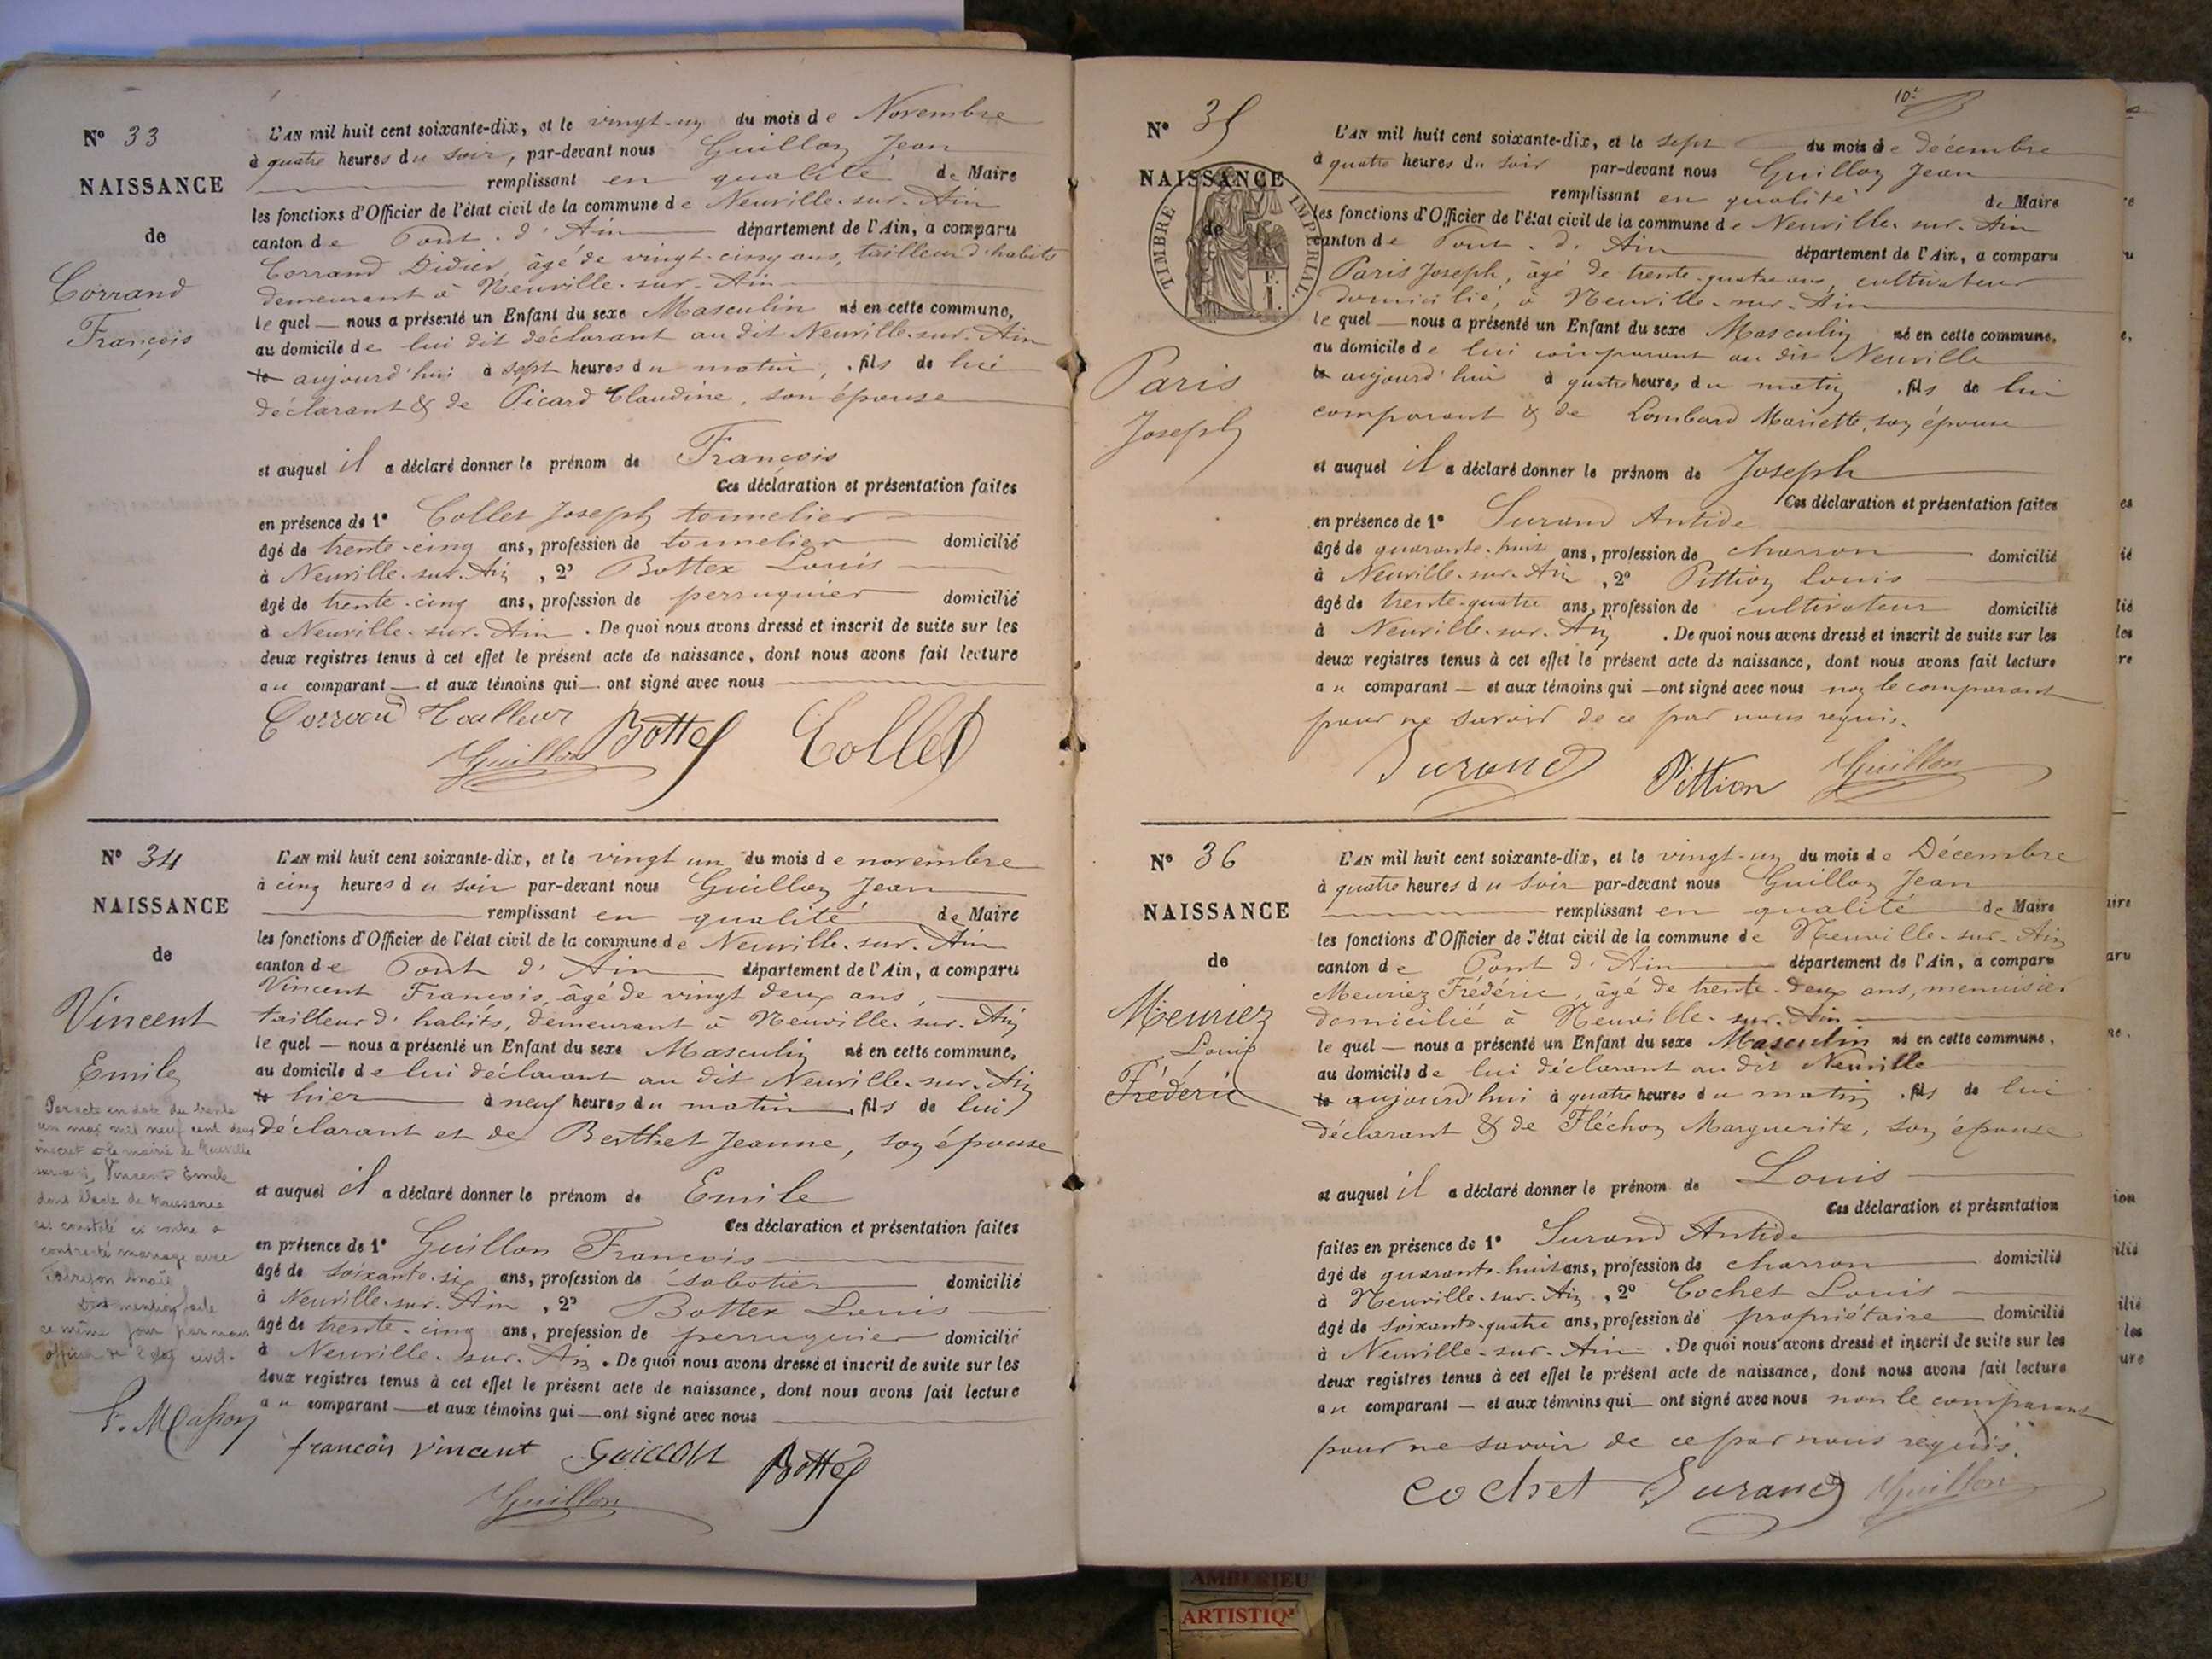 N° 33
NAISSANCE
de
Corrand
François
L'AN mil huit cent soixante-dix, et le vingt-un du mois de Novembre
à quatre heures du soir, par-devant nous Guillon Jean
remplissant en qualité de Maire
les fonctions d'Officier de l'état civil de la commune de Neuville-sur-Ain
canton de Pont-d'Ain département de l'Ain, a comparu
Corrand Didier, âgé de vingt-cinq ans, tailleur d'habits
demeurant à Neuville-sur-Ain
lequel — nous a présenté un Enfant du sexe Masculin né en cette commune,
au domicile de lui dit déclarant au dit Neuville-sur-Ain
le aujourd'hui à sept heures du matin, fils de lui
déclarant & de Picard Claudine, son épouse
et auquel il a déclaré donner le prénom de François
Ces déclaration et présentation faites
en présence de 1° Collet Joseph tonnelier
âgé de trente-cinq ans, profession de tonnelier domicilié
à Neuville-sur-Ain, 2° Bottex Louis
âgé de trente-cinq ans, profession de perruquier domicilié
à Neuville-sur-Ain. De quoi nous avons dressé et inscrit de suite sur les
deux registres tenus à cet effet le présent acte de naissance, dont nous avons fait lecture
au comparant — et aux témoins qui — ont signé avec nous
Corrand Tailleur Bottex Collet
Guillon
N° 34
NAISSANCE
de
Vincent
Emile
Par acte en date du trente
un mai mil neuf cent deux
inscrit à la mairie de Neuville
sur-ain, Vincent Emile
dont l'acte de Naissance
est constaté ci contre a
contracté mariage avec
dont mention faite
ce même jour par nous
officier de l'état civil.
F. Masson
L'AN mil huit cent soixante-dix, et le vingt un du mois de novembre
à cinq heures du soir par-devant nous Guillon Jean
remplissant en qualité de Maire
les fonctions d'Officier de l'état civil de la commune de Neuville-sur-Ain
canton de Pont d'Ain département de l'Ain, a comparu
Vincent François, âgé de vingt deux ans,
tailleur d'habits, demeurant à Neuville-sur-Ain
lequel — nous a présenté un Enfant du sexe Masculin né en cette commune,
au domicile de lui déclarant au dit Neuville-sur-Ain
le hier à neuf heures du matin, fils de lui
déclarant et de Berthet Jeanne, son épouse
et auquel il a déclaré donner le prénom de Emile
Ces déclaration et présentation faites
en présence de 1° Guillon François
âgé de soixante-six ans, profession de sabotier domicilié
à Neuville-sur-Ain, 2° Bottex Louis
âgé de trente-cinq ans, profession de perruquier domicilié
à Neuville-sur-Ain. De quoi nous avons dressé et inscrit de suite sur les
deux registres tenus à cet effet le présent acte de naissance, dont nous avons fait lecture
au comparant — et aux témoins qui — ont signé avec nous
françois vincent Guillon Bottex
Guillon
N° 35
NAISSANCE
de
TIMBRE IMPERIAL
Paris
Joseph
L'AN mil huit cent soixante-dix, et le sept du mois de décembre
à quatre heures du soir par-devant nous Guillon Jean
remplissant en qualité de Maire
les fonctions d'Officier de l'état civil de la commune de Neuville-sur-Ain
canton de Pont-d'Ain département de l'Ain, a comparu
Paris Joseph, âgé de trente-quatre ans, cultivateur
domicilié, à Neuville-sur-Ain
lequel — nous a présenté un Enfant du sexe Masculin né en cette commune,
au domicile de lui comparant au dit Neuville
le aujourd'hui à quatre heures du matin, fils de lui
comparant & de Lombard Mariette, son épouse
et auquel il a déclaré donner le prénom de Joseph
Ces déclaration et présentation faites
en présence de 1° Durand Antide
âgé de quarante-huit ans, profession de charron domicilié
à Neuville-sur-Ain, 2° Pittion Louis
âgé de trente-quatre ans, profession de cultivateur domicilié
à Neuville-sur-Ain. De quoi nous avons dressé et inscrit de suite sur les
deux registres tenus à cet effet le présent acte de naissance, dont nous avons fait lecture
au comparant — et aux témoins qui — ont signé avec nous non le comparant
pour ne savoir de ce par nous requis.
Durand Pittion Guillon
N° 36
NAISSANCE
de
Meuriez
Louis
Fréderic
L'AN mil huit cent soixante-dix, et le vingt-un du mois de Décembre
à quatre heures du soir par-devant nous Guillon Jean
remplissant en qualité de Maire
les fonctions d'Officier de l'état civil de la commune de Neuville-sur-Ain
canton de Pont d'Ain département de l'Ain, a comparu
Meuriez Frédéric, âgé de trente-deux ans, menuisier
domicilié à Neuville-sur-Ain
lequel — nous a présenté un Enfant du sexe Masculin né en cette commune,
au domicile de lui déclarant au dit Neuville
le aujourd'hui à quatre heures du matin, fils de lui
déclarant & de Fléchon Marguerite, son épouse
et auquel il a déclaré donner le prénom de Louis
Ces déclaration et présentation
faites en présence de 1° Durand Antide
âgé de quarante-huit ans, profession de charron domicilié
à Neuville-sur-Ain, 2° Cochet Louis
âgé de soixante-quatre ans, profession de propriétaire domicilié
à Neuville-sur-Ain. De quoi nous avons dressé et inscrit de suite sur les
deux registres tenus à cet effet le présent acte de naissance, dont nous avons fait lecture
au comparant — et aux témoins qui — ont signé avec nous non le comparant
pour ne savoir de ce par nous requis.
Cochet Durand Guillon
AMBERIEU
ARTISTIQ